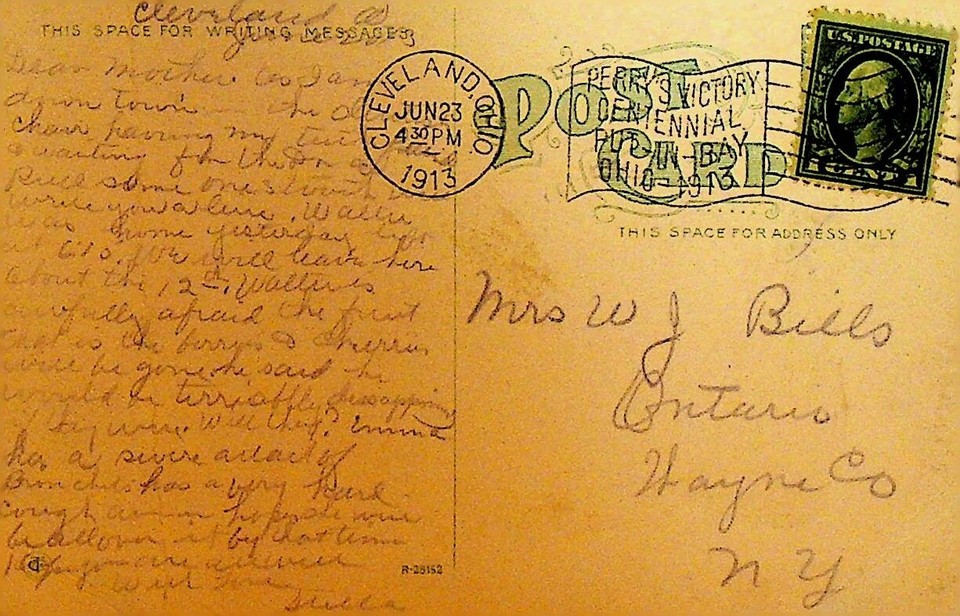 Cleveland O
THIS SPACE FOR WRITING MESSAGES
Dear Mother: As I am
down town in the
chair having my
waiting for the
some one
write you a line. Walter
was home yesterday left
at 6:15. We will leave here
about the 12th. Walter is
awfully afraid the fruit
that is the berrys & cherrys
will be gone he said he
would be terribly dissappoin
if they were. Will they? Emma
has a severe attact of
Bronchitis has a very hard
cough hope she will
be all over it by that time
Hope you are
With Love
Stella
R-28152
CLEVELAND, OHIO.
JUN 23
4 30 PM
1913
PERRY'S VICTORY
CENTENNIAL
PUT-IN-BAY
OHIO-1913
POST
CARD
U.S. POSTAGE
CENT
THIS SPACE FOR ADDRESS ONLY
Mrs W J Bills
Ontario
Wayne Co
N Y